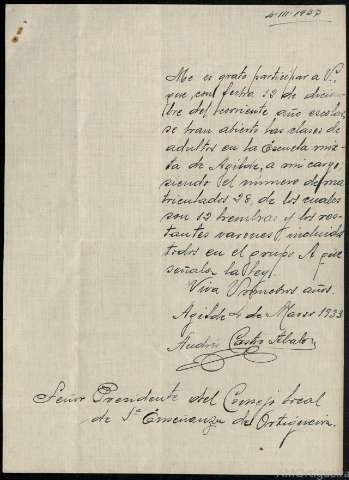 4-III-1937
Me es grato participar a V.
que, con fecha 12 de diciem-
bre del corriente año escolar,
se han abierto las clases de
adultos en la Escuela mix-
ta de Agilde, a mi cargo,
siendo el número de ma-
triculados 28, de los cuales
son 12 hembras y los res-
tantes varones e incluidos
todos en el grupo A que
señala la ley.
Viva V. muchos años.
Agilde 4 de Marzo 1933
Andrés Castro
Señor Presidente del Consejo local
de 1ª Enseñanza de Ortigueira.